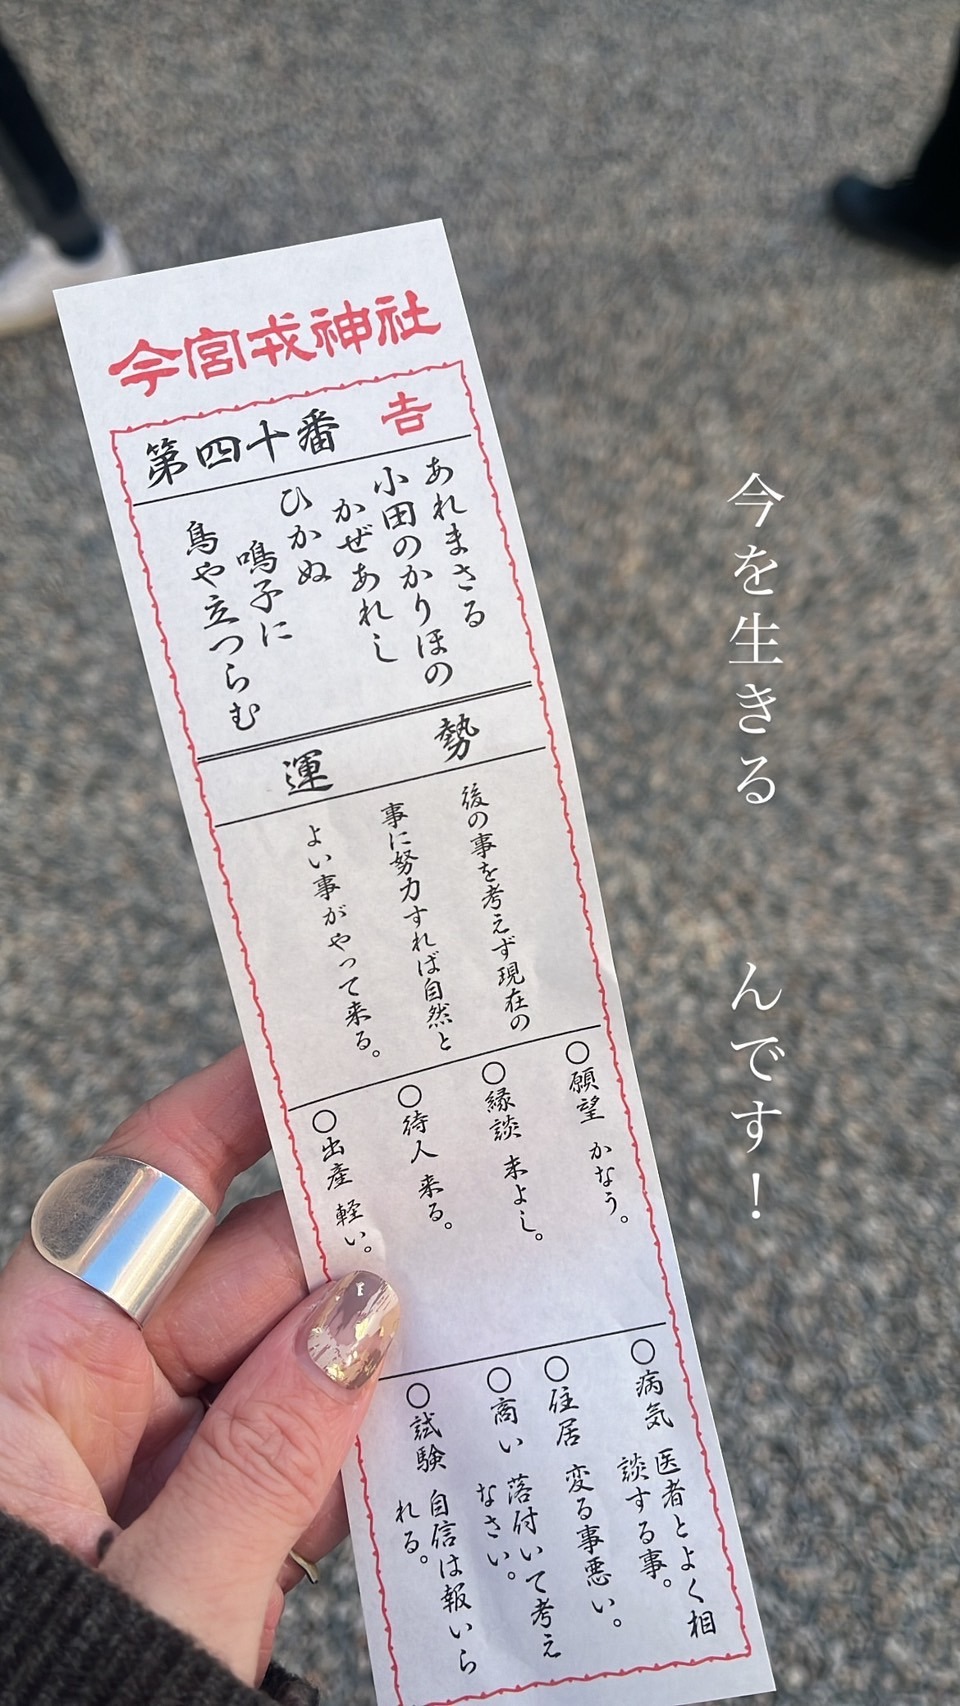 今宮戎神社
第四十番 吉
あれまさる
小田のかりほの
かぜあれし
ひかぬ
鳴子に
鳥や立つらむ
運勢
後の事を考えず現在の
事に努力すれば自然と
よい事がやって来る。
〇願望 かなう。
〇縁談 末よし。
〇待人 来る。
〇出産 軽い。
〇病気 医者とよく相
談する事。
〇住居 変る事悪い。
〇商い 落付いて考え
なさい。
〇試験 自信は報いら
れる。
今を生きる んです!